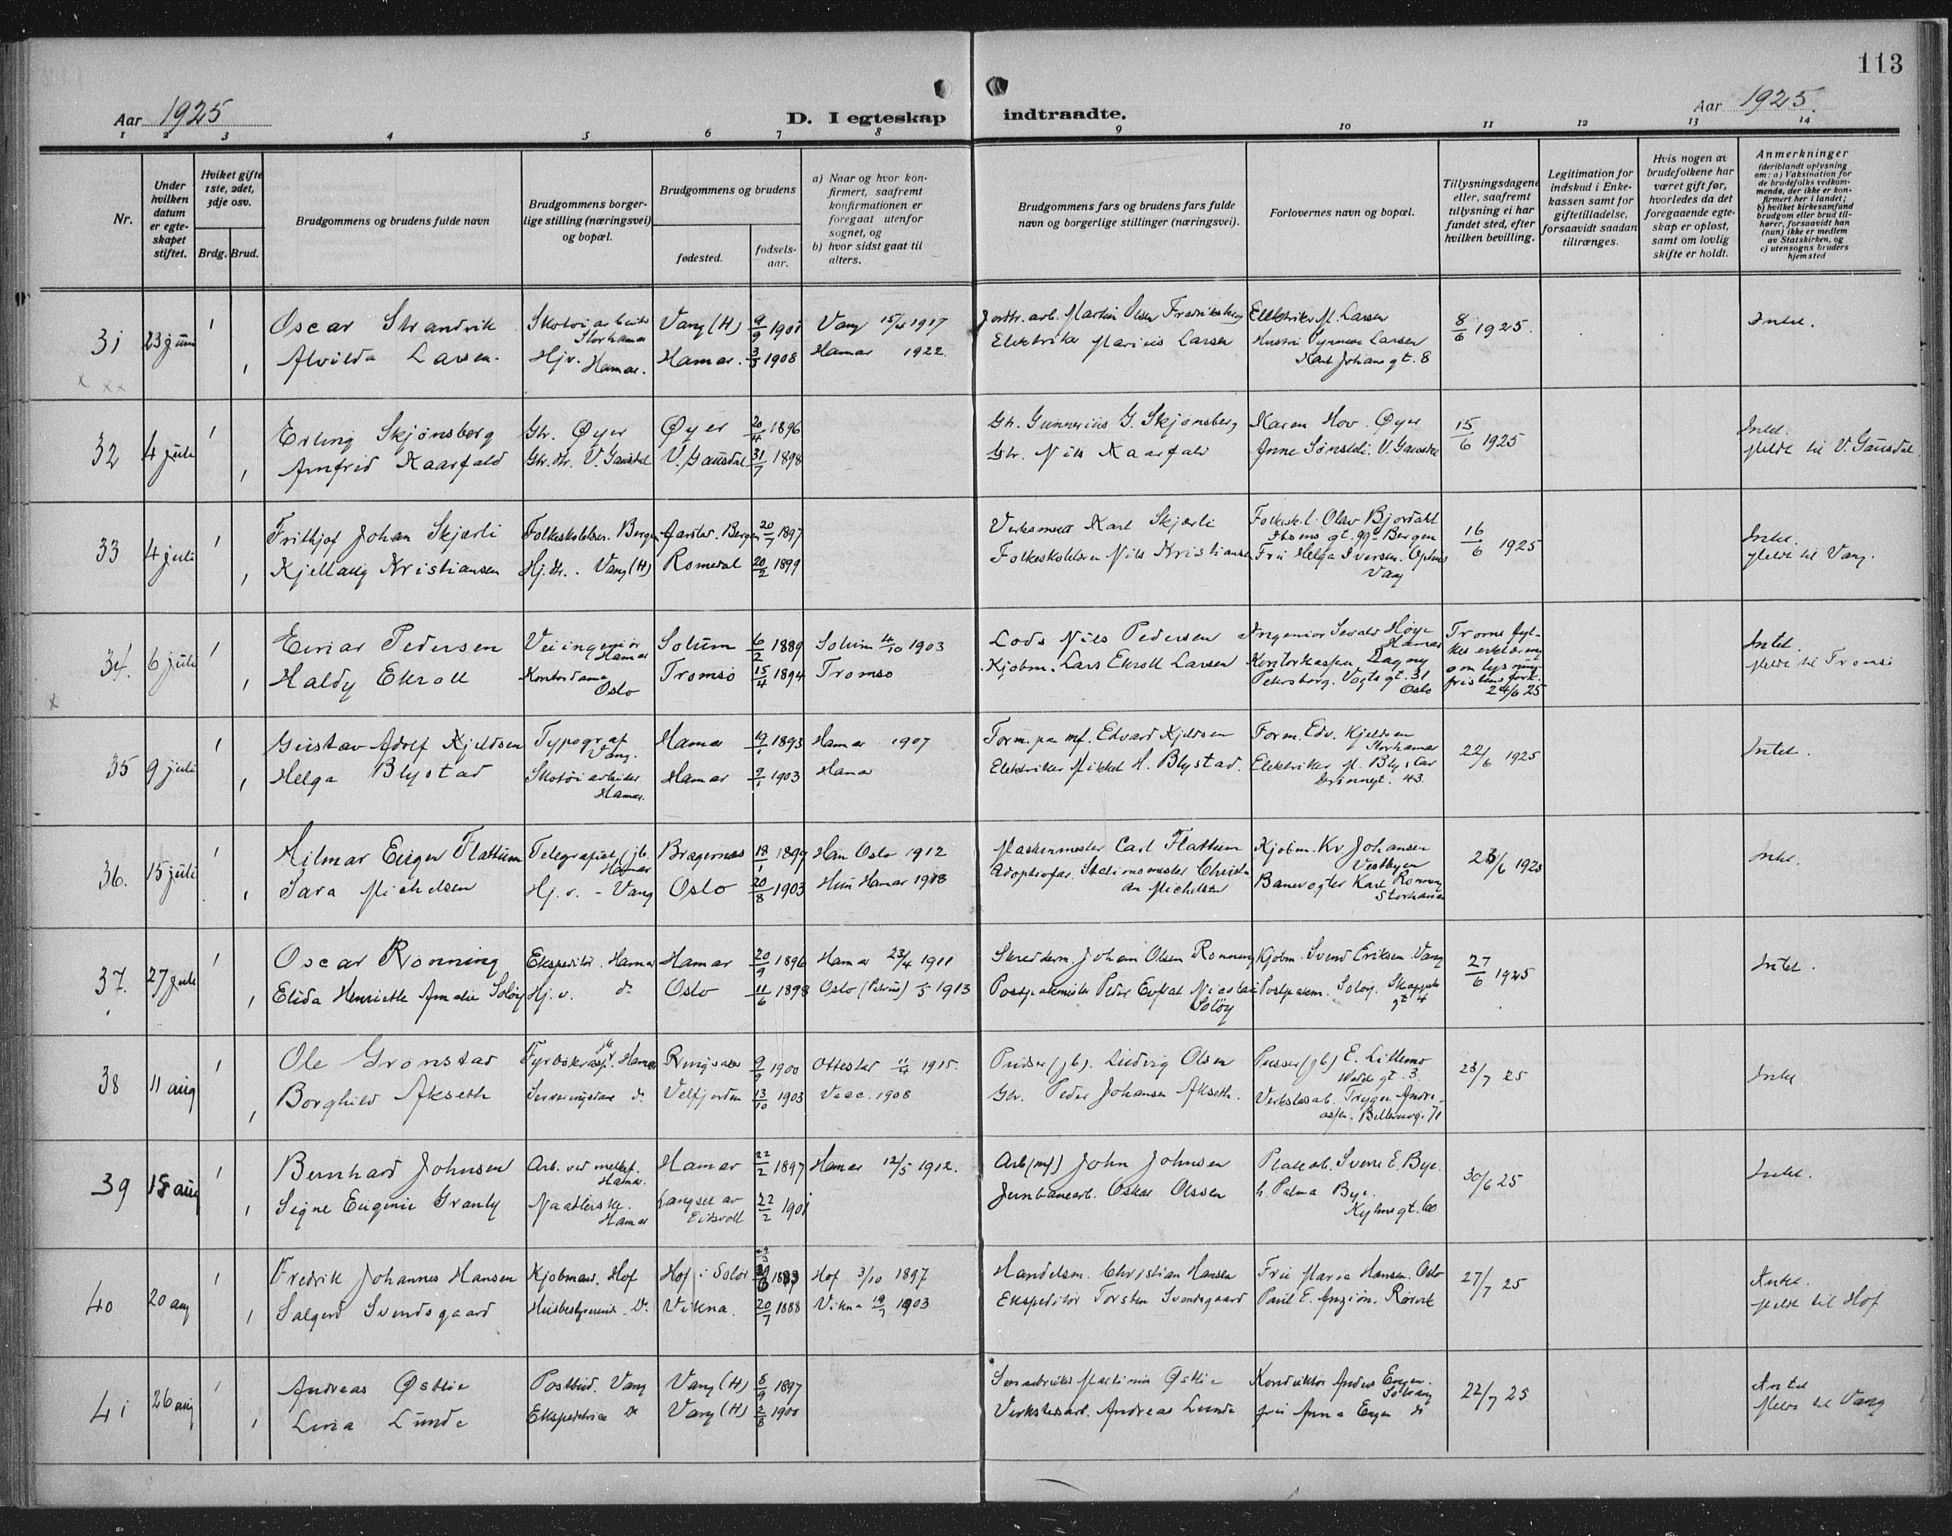 113
Aar 1925
D. I egteskap indtraadte.
Aar 1925.
1 2 3 4 5 6 7 8 9 10 11 12 13 14
Nr.
Under hvilken datum er egteskapet stiftet.
Hvilket gifte 1ste, 2det, 3dje osv.
Brdg. Brud.
Brudgommens og brudens fulde navn
Brudgommens borgerlige stilling (næringsvei) og bopæl.
Brudgommens og brudens
fødested.
fødselsaar.
a) Naar og hvor konfirmert, saafremt konfirmationen er foregaat utenfor sognet, og
b) hvor sidst gaat til alters.
Brudgommens fars og brudens fars fulde navn og borgerlige stillinger (næringsvei).
Forlovernes navn og bopæl.
Tillysningsdagene eller, saafremt tillysning ei har fundet sted, efter hvilken bevilling.
Legitimation for indskud i Enkekassen samt for giftetilladelse, forsaavidt saadan tiltrænges.
Hvis nogen av brudefolkene har været gift før, hvorledes da det foregaaende egteskap er opløst, samt om lovlig skifte er holdt.
Anmerkninger
(deriblandt oplysning om: a) Vaksination for de brudefolks vedkommende, der ikke er konfirmert her i landet; b) hvilket kirkesamfund brudgom eller brud tilhører, forsaavidt han (hun) ikke er medlem av Statskirken, og c) utensogns bruders hjemsted
31 23 juni 1 Oscar Strandvik Skotøiarbeider Storhamar Vang (H) 9/9 1901 Vang 1917 Martin Olsen Elektriker M. Larsen 8/6 1925. Intet.
1 Alvilda Larsen. Hj.v. Hamar. Hamar. 3/3 1908 Hamar 1922. Elektriker Marius Larsen Larsen Karl Johans gt. 8
32 4 juli 1 Erling Skjønsberg Gbr. Øyer Øyer 20/4 1896 Gbr. Gunnerius G. Skjønsberg Karen Hov. Øyer 15/6 1925 Intet.
1 Arnfrid Kaarfald Gbr.dtr. V. Gausdal V. Gausdal 31/7 1898 Gbr. Nils Kaarfald Anne V. Gausdal Meldt til V. Gausdal
33 4 juli 1 Frithjof Johan Skjerli Bergen Bergen 20/7 1897 Karl Skjerli Olav Bjordahl Bergen 16/6 1925 Intet.
1 Kjellaug Kristiansen Hj.dtr. Vang (H) Romedal 20/2 1899 Nils Kristiansen Frk Helga Iversen. Vang Meldt til Vang.
34. 6 juli 1 Einar Pedersen Veiingeniør Hamar Solum 6/2 1889 Solum 4/10 1903 Lods Nils Pedersen Ingeniør Sevald Høye Hamar Intet.
1 Haldy Ekroll Kontordame Oslo Tromsø 15/4 1894 Tromsø Kjøbm. Lars Ekroll Larsen Vogts gt. 31 Oslo 24/6 25 Meldt til Tromsø
35 9 juli 1 Gustav Adolf Kjeldsen Typograf Vang. Hamar 19/1 1893 Hamar 1907 Edvard Kjeldsen Form. Edv. Kjeldsen Storhamar 22/6 1925 Intet.
1 Helga Blystad Skotøiarbeider Hamar. Hamar 9/1 1903 Hamar Elektriker Mikkel H. Blystad. Elektriker M. Blystad Grønnegt. 43.
36. 15 juli 1 Hilmar Eugen Flattum Telegrafist (jb. Hamar Bragernes 18/1 1899 Han Oslo 1912 Maskinmester Carl Flattum Kjøbm. Kr Johansen Vestbyen 1925 Intet.
1 Sara Michelsen Hj. v. - Vang Oslo 20/8 1903 Hun Hamar 1918 Adoptivfar. Stationsmester Christian Michelsen Banevogter Karl Rønning Storhamar
37. 27 juli 1 Oscar Rønning Ekspeditør. Hamar Hamar 20/9 1896 Hamar 23/4 1911 Skredderm. Johan Olsen Rønning Kjøbm. Svend Eriksen. Vang 27/6 1925 Intet.
1 Elida Henriette Amalie Soløy Hj. v. do Oslo 11/6 1898 Oslo 1913 Peder Nicolai Soløy Soløy.
38 11 aug 1 Ole Grønstad Hamar Ringsaker 9/9 1900 Ottestad 1915. Pudser (jb). Ludvig Olsen Pudser (jb) E. Lillemo gt. 3. 23/7 25 Intet
1 Borghild Akseth do. Velfjorden 13/10 1903 1908 Gbr. Peder Johansen Akseth. Verkstedarb. Trygve
39 15 aug 1 Bernhard Johnsen Arb. ved Hamar. Hamar 22/2 1897 Hamar 12/5 1912. Arb (mf) John Johnsen Sverre E. Bye. 30/6 25 Intet.
1 Signe Eugenie Granly Hamar Langset av Eidsvoll 22/2 1901 Jernbanearb. Oskar Olssen Palma Bye.
40 20 aug 1 Fredrik Johannes Hansen Kjøbmand. Hof Hof i Solør 1883 Hof 3/10 1897 Handelsm. Christian Hansen Fru Marie Hansen. Oslo 27/7 25 Intet.
1 Salgerd Svendsgaard Husbestyrerinde do. Vikna. 20/7 1888 Vikna 19/7 1903 Ekspeditør Torsten Svendsgaard Paul E. Anzjøn. Rørvik Meldt til Hof
41 26 aug 1 Andreas Østlie Postbud. Vang Vang (H) 8/9 1897 Østlie Konduktør Anders Engen. 22/7 25 Intet
1 Lina Lunde do Vang (H) 2/8 1900 Verkstedarb. Andreas Lunde fru Anna Engen do Meldt til Vang